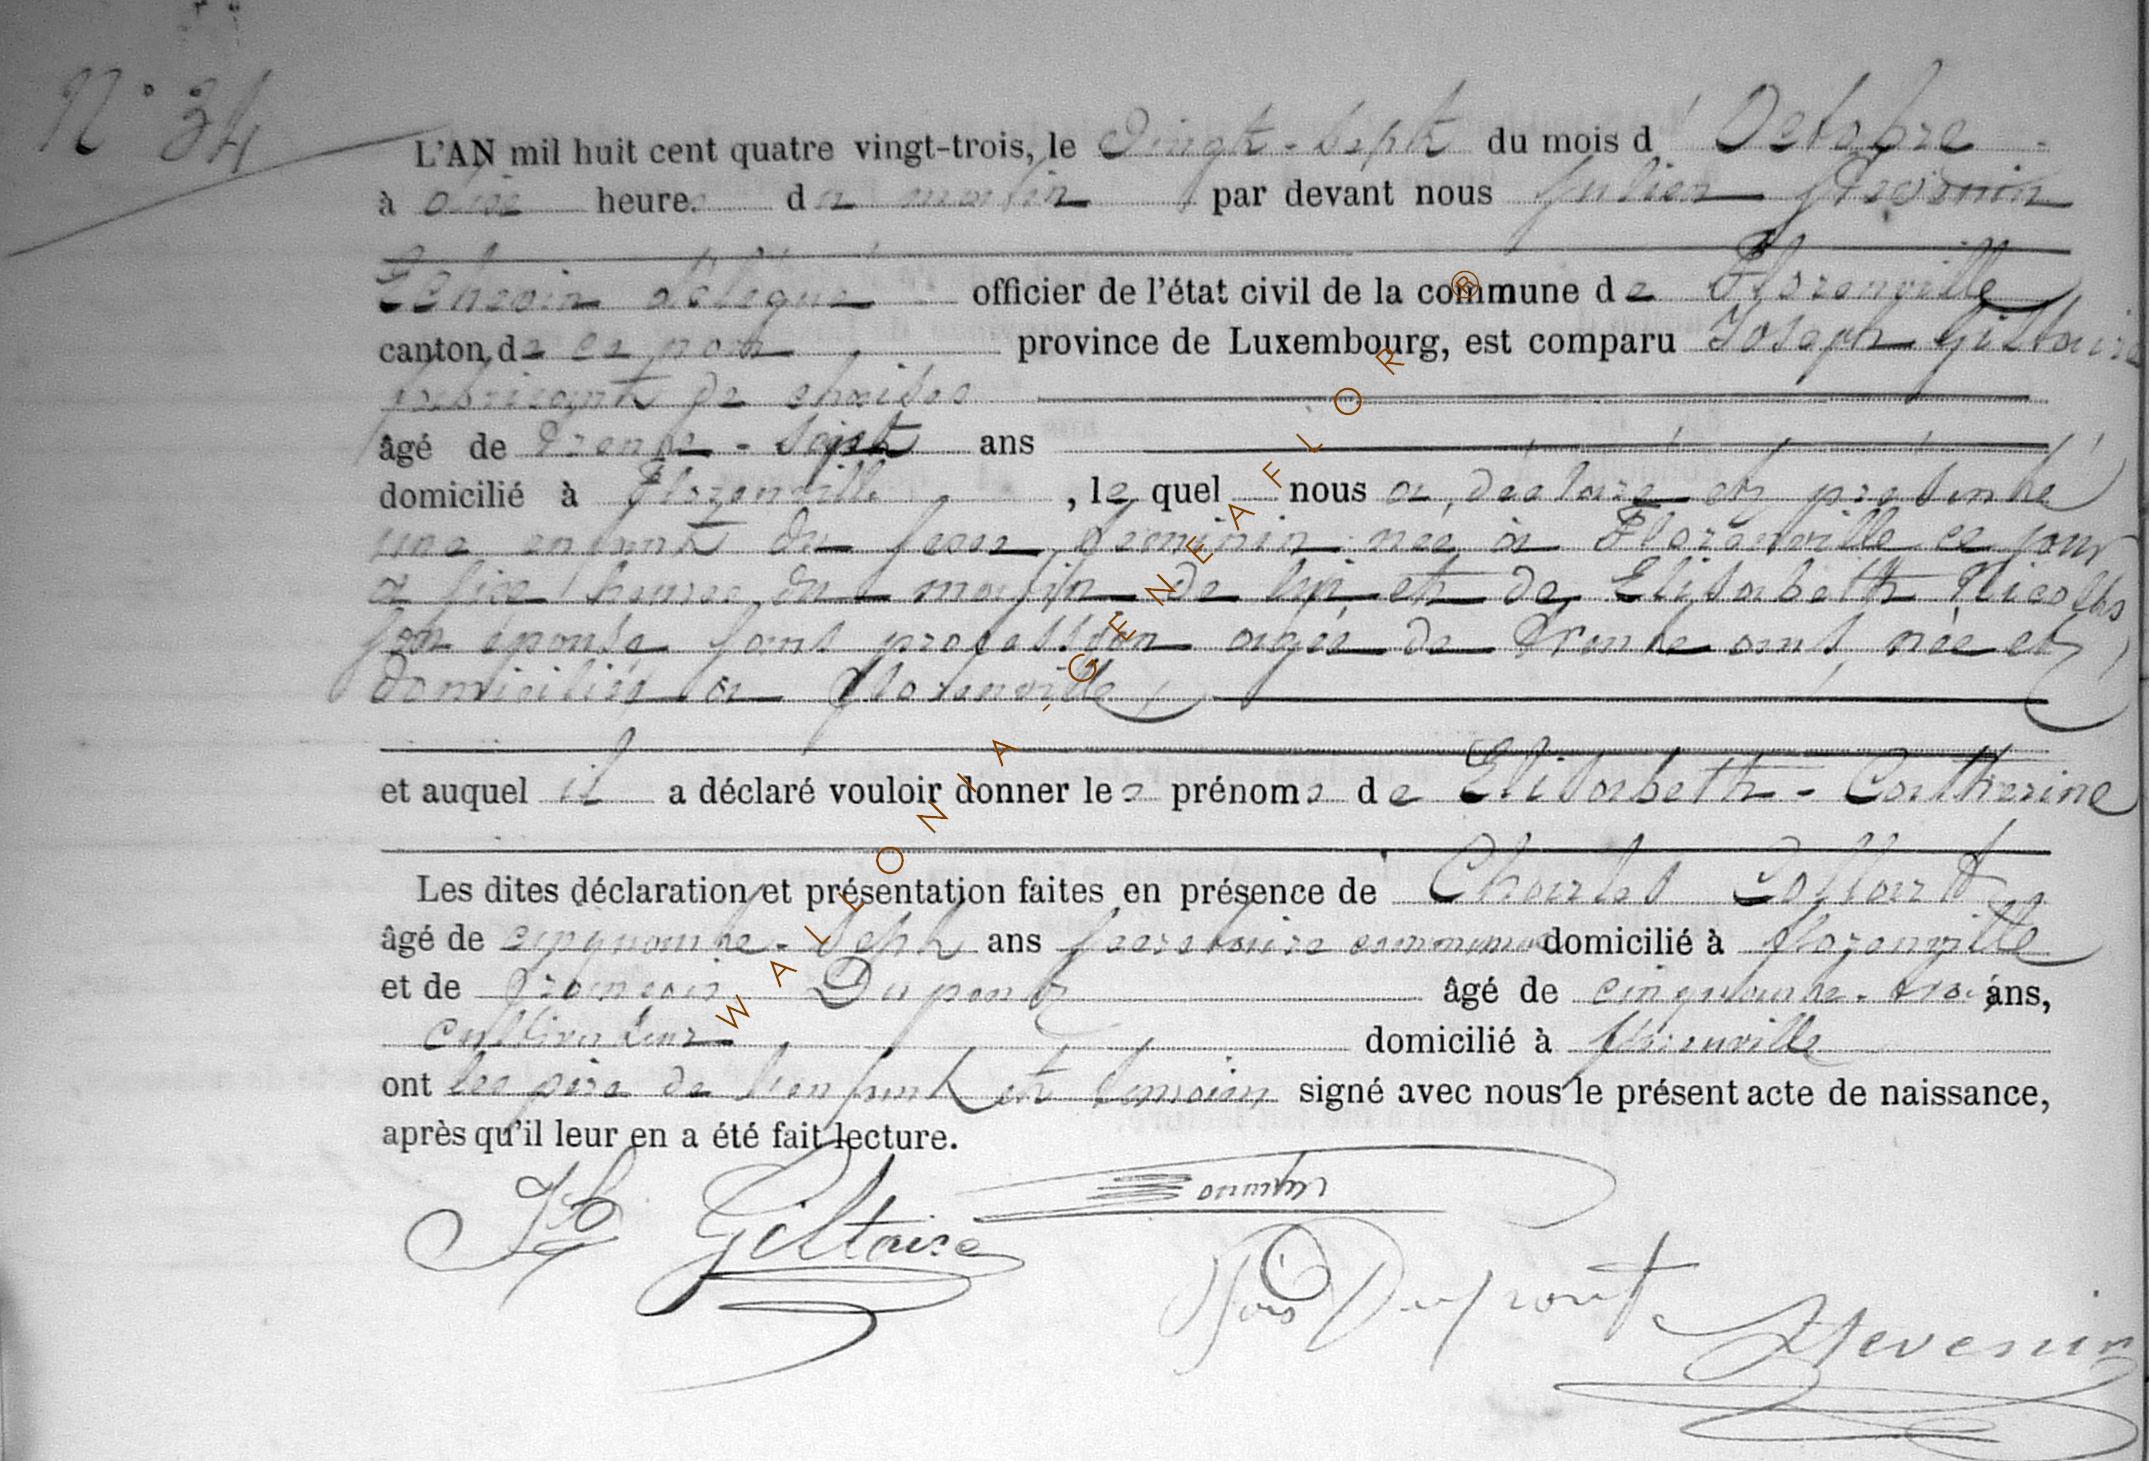 N° 34
L'AN mil huit cent quatre vingt-trois, le Vingt-Sept du mois d' Octobre
à onze heures du matin par devant nous Julien
Echevin délégué officier de l'état civil de la commune de Florenville
canton de ce nom province de Luxembourg, est comparu Joseph Giltaire
fabricant de chaises
âgé de trente-sept ans
domicilié à Florenville, lequel nous a déclaré et présenté
une enfant du sexe féminin née à Florenville ce jour
à six heures du matin de lui et de Elisabeth
son épouse sans profession agée de trente ans, née et
domiciliée à Florenville,
et auquel il a déclaré vouloir donner les prénoms de Elisabeth-Catherine
Les dites déclaration et présentation faites en présence de Charles Collart
âgé de cinquante-sept ans secrétaire communal domicilié à Florenville
et de François Dupont âgé de cinquante-trois ans,
cultivateur domicilié à Florenville
ont les père de l'enfant et témoins signé avec nous le présent acte de naissance,
après qu'il leur en a été fait lecture.
Jh Giltaire
Dupont
WALLONIA-GENEAFLOR®